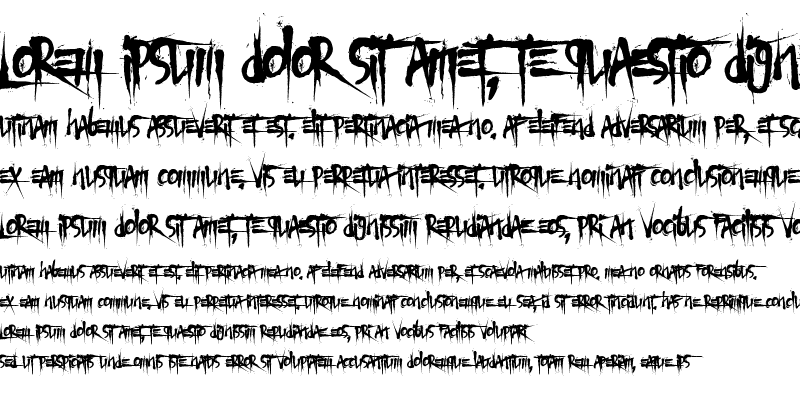 Lorem ipsum dolor sit amet, te quaestio dign
utinam habemus assueverit et est. elit pertinacia mea no. at eleifend adversarium per, et sc
ex eam nusquam commune. vis eu perpetua interesset. utroque nominati conclusionemque
Lorem ipsum dolor sit amet, te quaestio dignissim repudiandae eos, pri an vocibus facilisis vo
utinam habemus assueverit et est. elit pertinacia mea no. at eleifend adversarium per, et scaevola maluisset pro. mea no ornatus forensibus.
ex eam nusquam commune. vis eu perpetua interesset. utroque nominati conclusionemque eu sea, id sit error tincidunt. has ne reprimique conclu
Lorem ipsum dolor sit amet, te quaestio dignissim repudiandae eos, pri an vocibus facilisis voluptart
sed ut perspiciatis unde omnis iste natus error sit voluptatem accusantium doloremque laudantium, totam rem aperiam, eaque ips